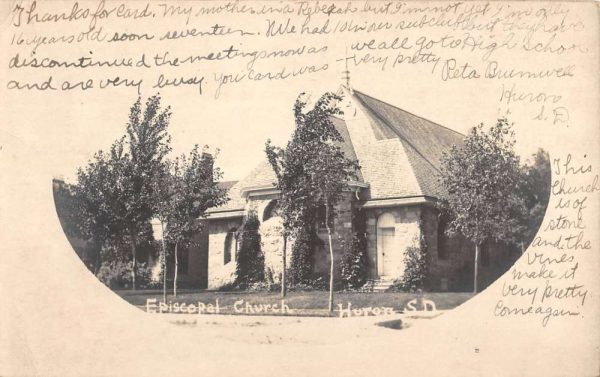 Thanks for card. My mother is a Rebekah but I'm not yet I'm only
16 years old soon seventeen. We had 10 in our sub club but they have
discontinued the meetings now as we all go to High School
and are very busy. You card was very pretty
Reta Brumwell
Huron
S.D.
This
Church
is of
stone
and the
vines
make it
very pretty.
Come again.
Episcopal Church Huron S.D.